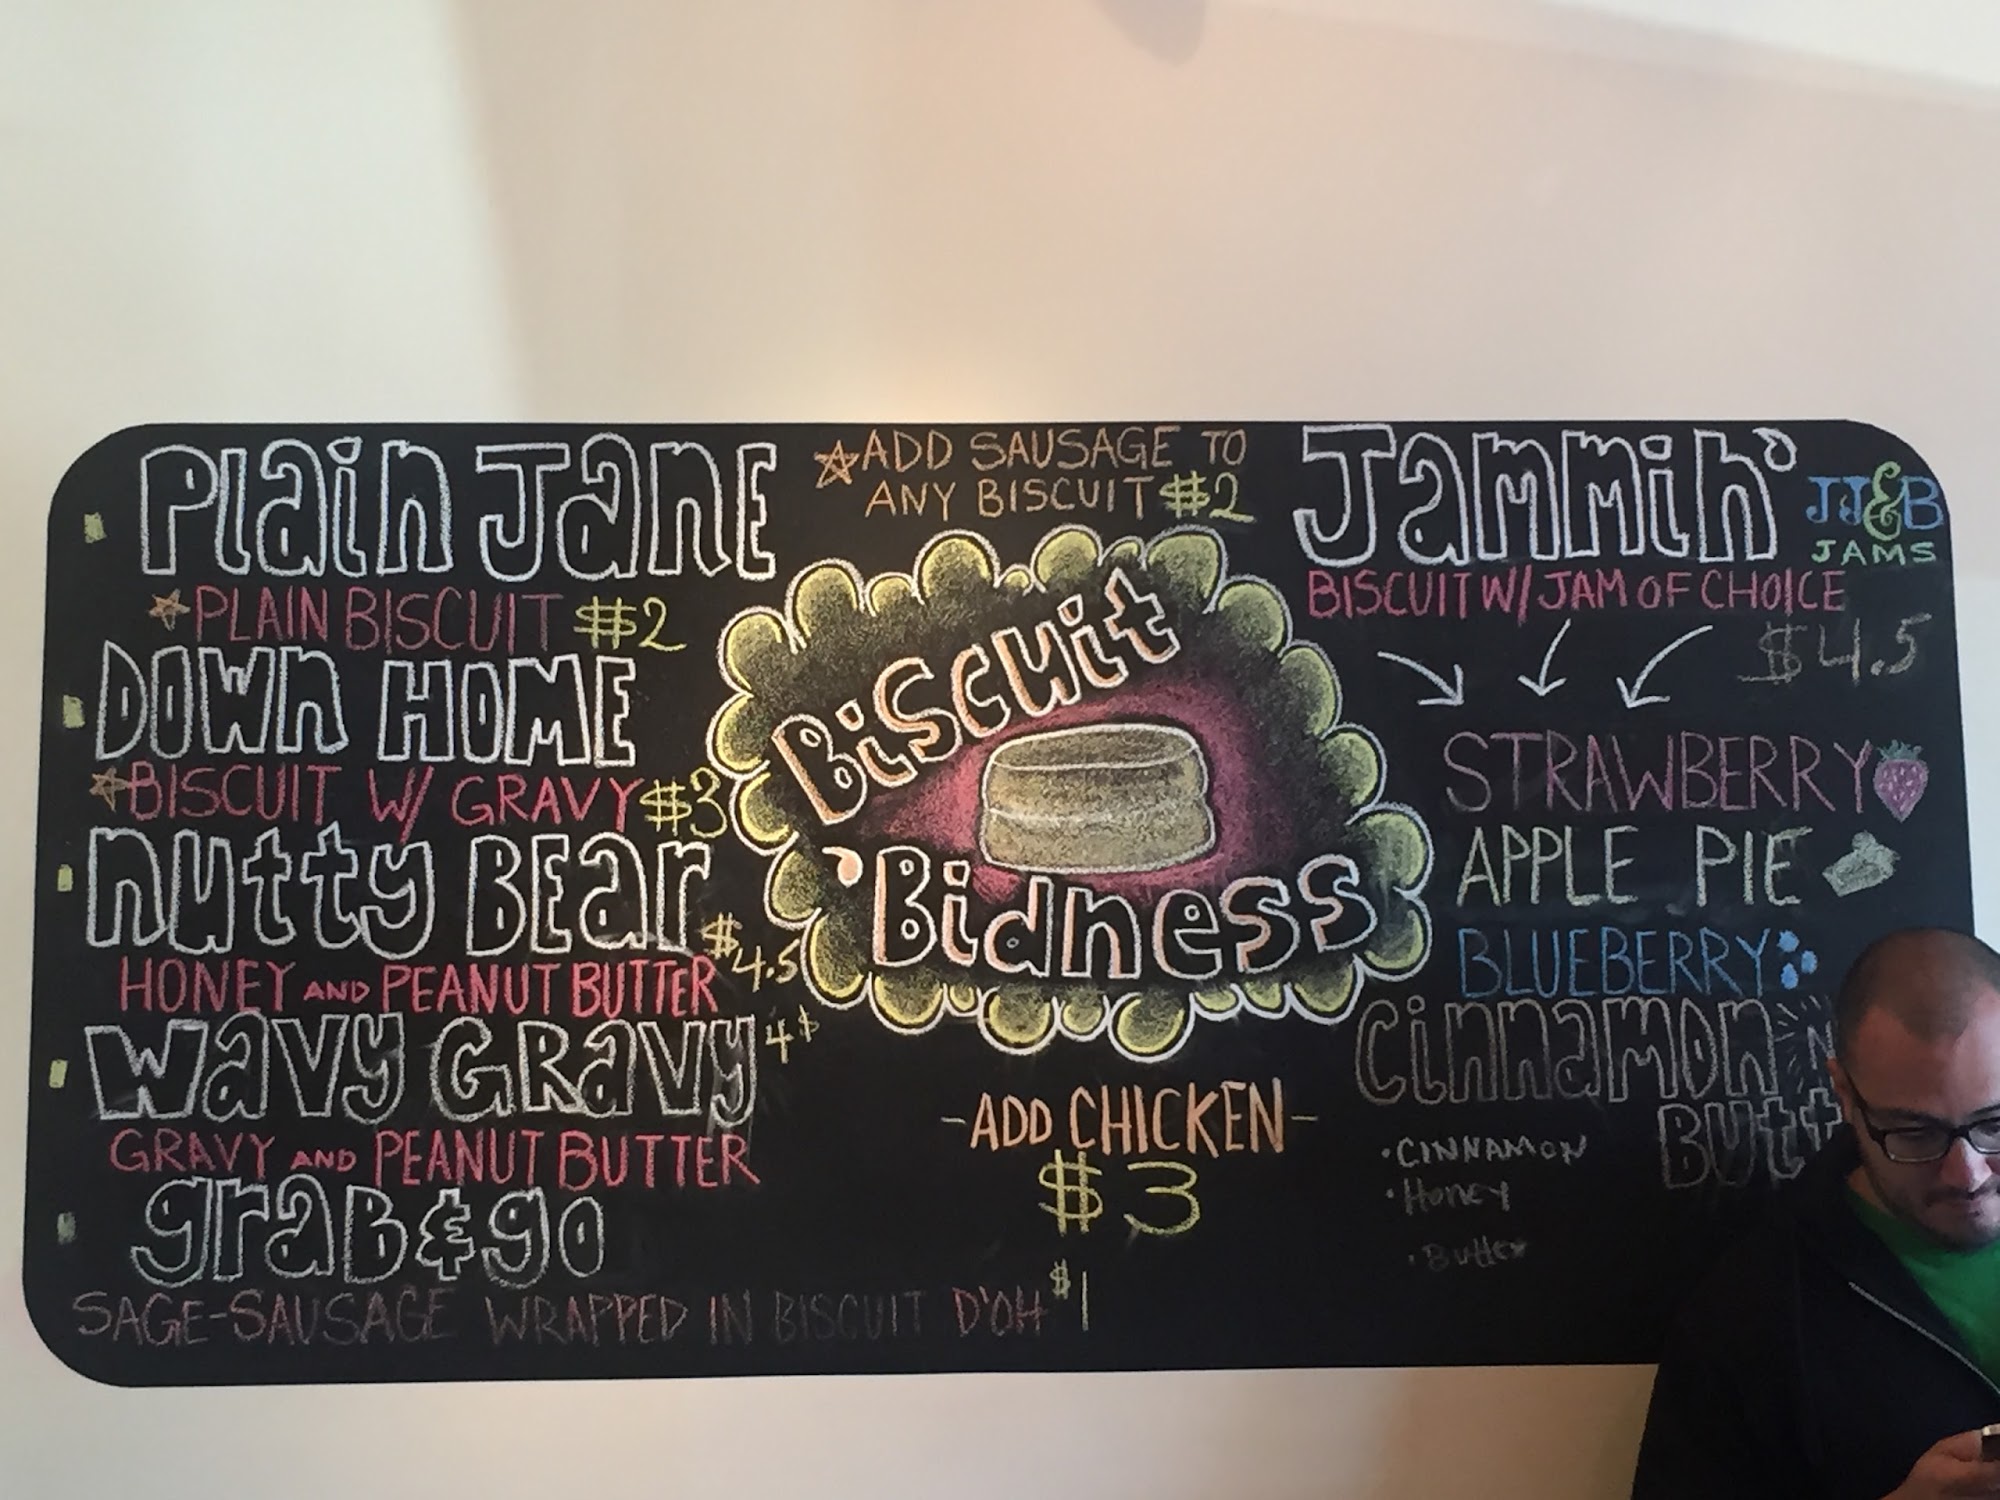 PLain JanE
PLAIN BISCUIT $2
DOWn HOME
BISCUIT W/ GRAVY $3
nutty BEar
$4.5
HONEY AND PEANUT BUTTER
WavY GRavY 4$
GRAVY AND PEANUT BUTTER
graB & go
SAGE-SAUSAGE WRAPPED IN BISCUIT D'OH $1
ADD SAUSAGE TO
ANY BISCUIT $2
Biscuit
'Bidness
-ADD CHICKEN-
$3
Jammin'
JJ&B
JAMS
BISCUIT W/ JAM OF CHOICE
$4.5
STRAWBERRY
APPLE PIE
BLUEBERRY
Cinnamon
• CINNAMON
• Honey
• Butter